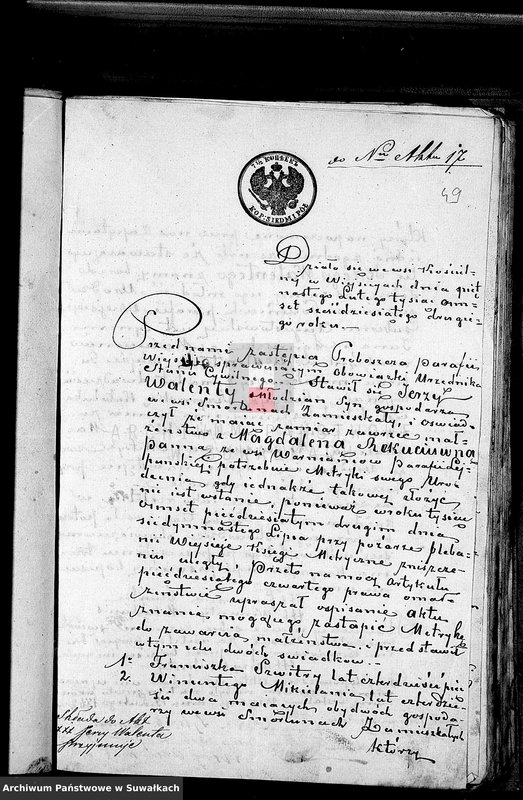 do Nru Aktu 17
49
7½ KOPIEEK
KOP. SIEDM I PÓŁ
Działo się we wsi Kościel-
nej w Wiejsiejach dnia pięt-
nastego Lutego tysiąc ośm-
set sześćdziesiątego drugie-
go roku.—
Przed nami zastępcą Proboszcza parafii
Wiejsieje sprawującym obowiązki Urzędnika
Stanu Cywilnego. Stawił się Jerzy
Walenty młodzian Syn gospodarza
we wsi zamieszkały, i oświad-
czył że mając zamiar zawrzeć mał-
żeństwo z Magdaleną Rekuciuwną
panną ze wsi Warnianów Parafii Lej-
puńskiej potrzebuje Metryki swego Uro-
dzenia gdy jednakże takowej złożyć
nie jest wstanie, ponieważ w roku tysiąc
ośmset pięćdziesiątym drugim dnia
siedymnastego Lipca przy pożarze pleba-
nii Wiejsieje Księgi Metryczne zniszcze-
niu uległy. Przeto na mocy artykułu
pięćdziesiątego czwartego prawa o mał-
żeństwie upraszał o spisanie aktu
znania mogącego zastąpić Metrykę
do zawarcia małżeństwa. i przedstawił
w tym celu dwóch świadków.
1. Franciszka Szwitry lat czterdzieści pięć
2. Wincentego Mikielania lat czterdzie-
ści dwa mających obydwóch gospoda-
rzy we wsi zamieszkałych
którzy
Składa do Akt
xxx Jerzy Walenta
przyjmuje
Archiwum Państwowe w Suwałkach